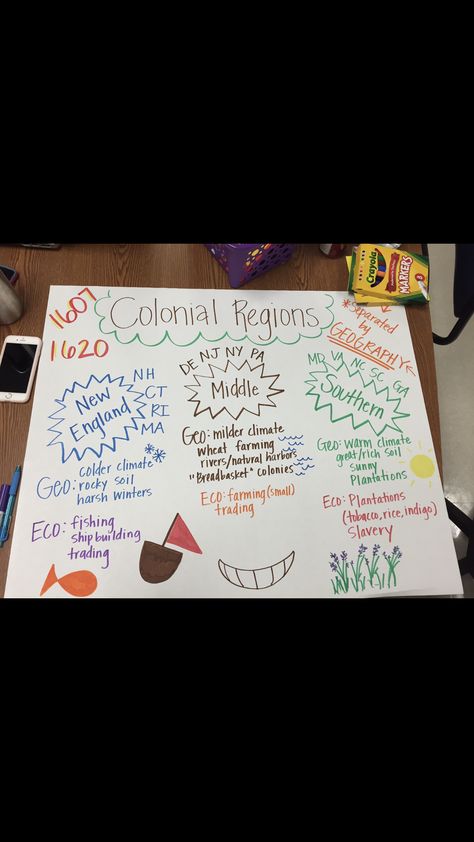 1607
1620
Colonial Regions
Crayola
MARKERS
*Separated
by
GEOGRAPHY
New
England
NH
CT
RI
MA
colder climate
Geo: rocky soil
harsh winters
Eco: fishing
shipbuilding
trading
DE NJ NY PA
Middle
Geo: milder climate
wheat farming
rivers/natural harbors
"Breadbasket" colonies
Eco: farming (small)
trading
MD VA NC SC GA
Southern
Geo: warm climate
great/rich soil
sunny
Plantations
Eco: Plantations
(tobacco, rice, indigo)
Slavery